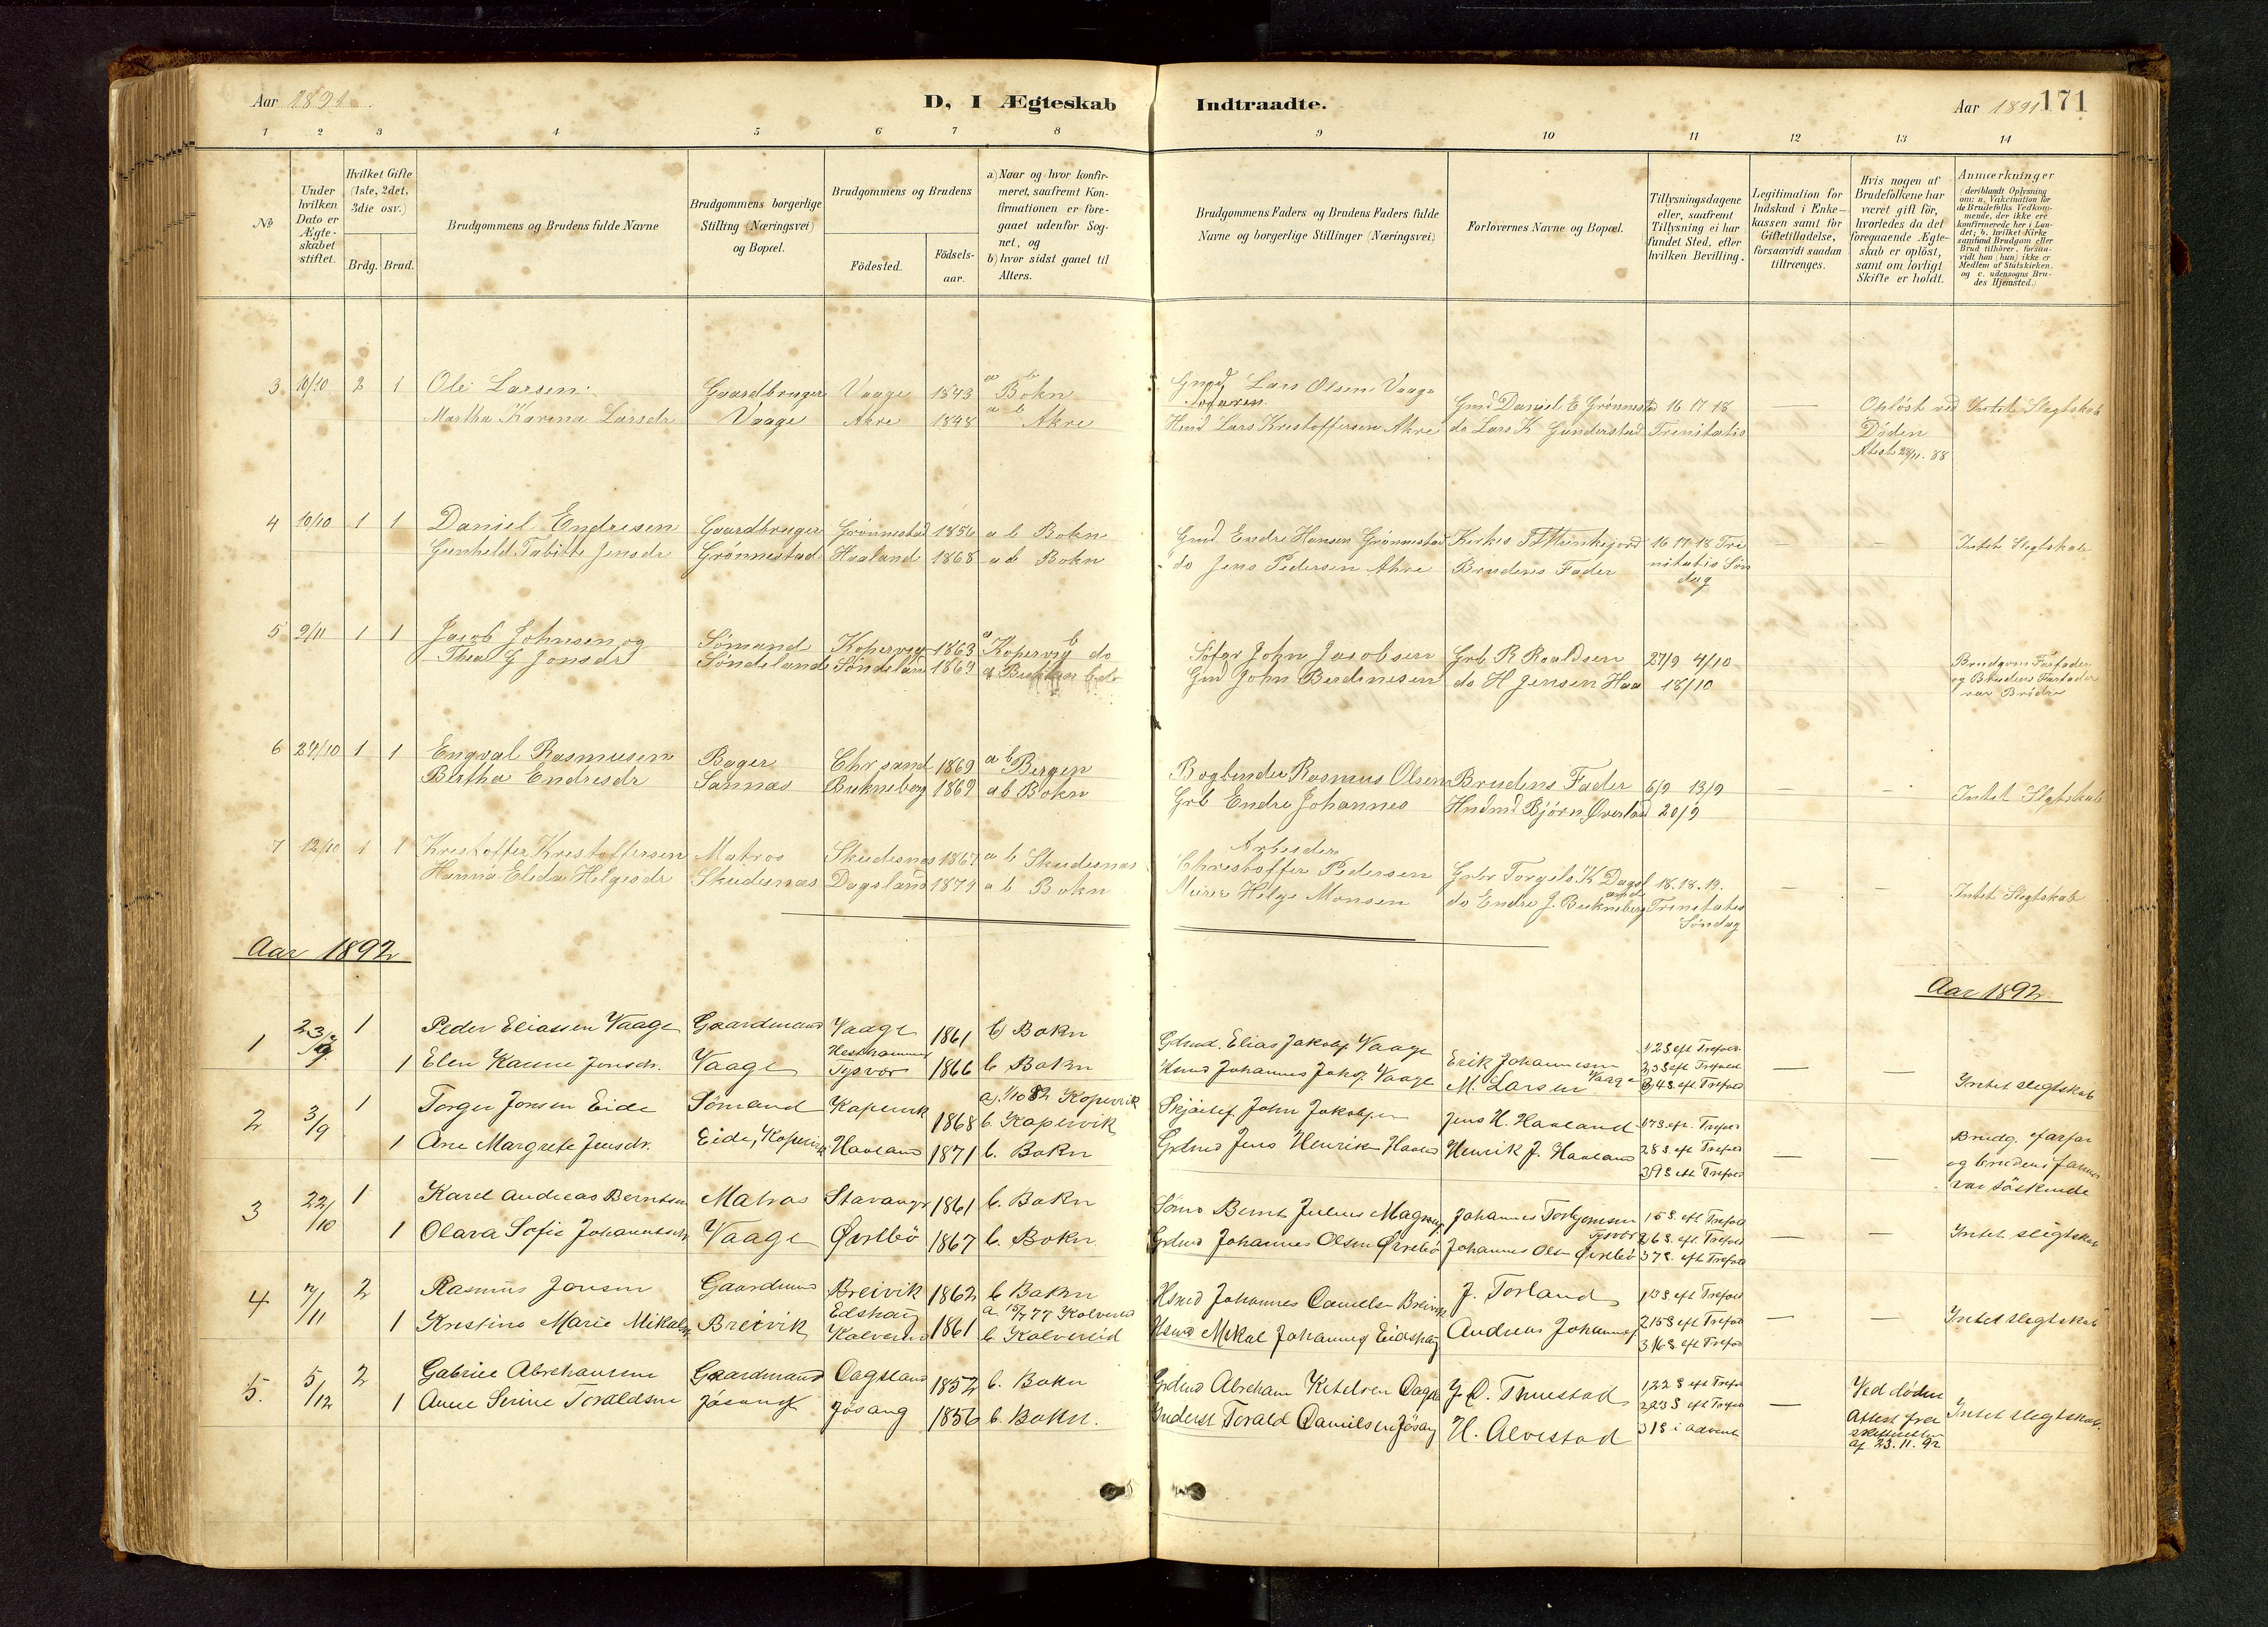 Aar 1891.
D, I Ægteskab
Indtraadte.
Aar 1891 171
1 2 3 4 5 6 7 8 9 10 11 12 13 14
№
Under hvilken Dato er Ægteskabet stiftet.
Hvilket Gifte (1ste, 2det, 3die osv.)
Brdg. Brud.
Brudgommens og Brudens fulde Navne
Brudgommens borgerlige Stilling (Næringsvei) og Bopæl.
Brudgommens og Brudens
Födested.
Födselsaar.
a) Naar og hvor konfirmeret, saafremt Konfirmationen er foregaaet udenfor Sognet, og
b) hvor sidst gaaet til Alters.
Brudgommens Faders og Brudens Faders fulde Navne og borgerlige Stillinger (Næringsvei)
Forlovernes Navne og Bopæl.
Tillysningsdagene eller, saafremt Tillysning ei har fundet Sted, efter hvilken Bevilling.
Legitimation for Indskud i Enkekassen samt for Giftetilladelse, forsaavidt saadan tiltrænges.
Hvis nogen af Brudefolkene har været gift för, hvorledes da det foregaaende Ægteskab er oplöst, samt om lovligt Skifte er holdt.
Anmærkninger
(deriblandt Oplysning om: a. Vakcination for de Brudefolks Vedkommende, der ikke ere konfirmerede her i Landet; b. hvilket Kirkesamfund Brudgom eller Brud tilhörer, forsaavidt han (hun) ikke er Medlem af Statskirken, og c. udensogns Brudes Hjemsted.)
3 10/10 2 1 Ole Larsen Gaardbruger Vaage 1843 a b Bokn Gmd Lars Olsen Vaage
Martha Karina Larsdr Vaage Akre 1848 a b Akre Hmd Lars Kristoffersen Akre
Gmd Daniel E Grønnestad 16 17 18
do Lars K Gunderstad Trinitatis
Opløst ved Døden
Attest 28/11 88
Intet Slegtskab
4 10/10 1 1 Daniel Endresen Gaardbruger Grønnestad 1856 a b Bokn Gmd Endre Hansen Grønnestad Kirkes T Munkejord 16 17 18 Tri
Gunheld Tabitte Jensdr Grønnestad Haaland 1868 a b Bokn do Jens Pedersen Akre Brudens Fader nitatis Søn
dag
Intet Slegtskab
5 9/11 1 1 Jacob Johnsen og Sømand Kopervig 1863 a Kopervig b do Søfar John Jacobsen Grb R Roaldsen 27/9 4/10
Thea G Jonsdr Søndeland Søndeland 1869 a Bukken b do Gmd John Berdinesen do H Jensen Haa 18/10
Brudgoms Farfader
og Brudens Farfader
var Brødre
6 27/10 1 1 Engval Rasmusen Bager Chrsand 1869 a b Bergen Bogbinder Rasmus Olsen Brudens Fader 6/9 13/9
Bertha Endresdr Sannæs Bukneberg 1869 a b Bokn Grb Endre Johannes Husmd Bjørn Øverland 20/9
Intet Slegtskab
7 12/10 1 1 Kristoffer Kristoffersen Matros Skudesnæs 1867 a b Skudesnæs Arbeider
Christoffer Pedersen Grbr Torgils K Dagsland 18. 18. 19.
Hanna Elida Helgesdr Skudesnæs Dagsland 1874 a b Bokn Murer Helge Monsen do Endre J. Bukneberg Trinitatis
Søndag
Intet Slegtskab
Aar 1892
Aar 1892.
1 23/9 1 Peder Eliassen Vaage Gaardmand Vaage 1861 b) Bokn Gdmd. Elias Jakobs. Vaage Erik Johannesen
1 Elen Karine Jonsdr. Vaage Hesthammer Tysvær 1866 b Bokn Husmd Johannes Johs. Vaage M. Larsen Vaage
1 2 S eft Trefold.
2 3 S eft Trefold
3 4 S. eft Trefold
Intet slegtskab
2 3/9 1 Torger Jonsen Eide Sømand Kopervik 1868 a. 1/10 82 Kopervik
b. Kopervik Skjøitef. John Jakobsen Jens H. Haaland 1 7 S. eft. Trefold
1 Ane Margrete Jensdr. Eide, Kopervik Haaland 1871 b. Bokn Gdmd Jens Henriks Haaland Henrik J. Haaland 2 8 S. eft Trefold
3 9 S eft Trefold
Brudg. farfar
og brudens farmor
var søskende
3 22/10 1 Karl Andreas Berntsen Matros Stavanger 1861 b. Bokn Sømd Bernt Julius Magnus. Johannes Torbjørnsen Tysvær 1 5 S. eft Trefold
1 Olava Sofie Johannesdr Vaage Ørebø 1867 b. Bokn Gdmd Johannes Olsen Ørebø Johannes Olsen Ørebø 2 6 S. eft. Trefold
3 7 S. eft Trefold
Intet slegtskab
4 7/11 2 Rasmus Jonsen Gaardmand Breivik 1862 b Bokn Hsmd Johannes Danielsen Breivik J. Torland 1 13 S eft Trefold
1 Kristine Marie Mikalsdr Breivik Edshaug Kolvereid 1861 a. 15/7 77 Kolvereid
b. Kolvereid Husmd Mikal Johannes Eidshaug Andreas Johannes. 2 15 S eft Trefold
3 16 S. eft Trefold
Intet slegtskab
5. 5/12 2 Gabriel Abrahamsen Gaardmand Dagsland 1852 b. Bokn Gdmd Abraham Ketelsen Dagsland J. O. Tunestad 1 22 S eft Trefold
1 Anne Serine Toraldsen Jøsang Jøsang 1856 b. Bokn. Inderst Torald Danielsen Jøsang H. Alvestad 2 23 S eft Trefold
3 1 S i advent
Ved døden
Attest fra
skifteretten
af 23. 11. 92
Intet slegtskab.